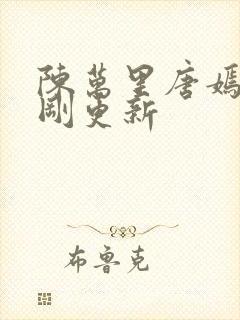 陳萬里唐嫣
剛更新
布魯克